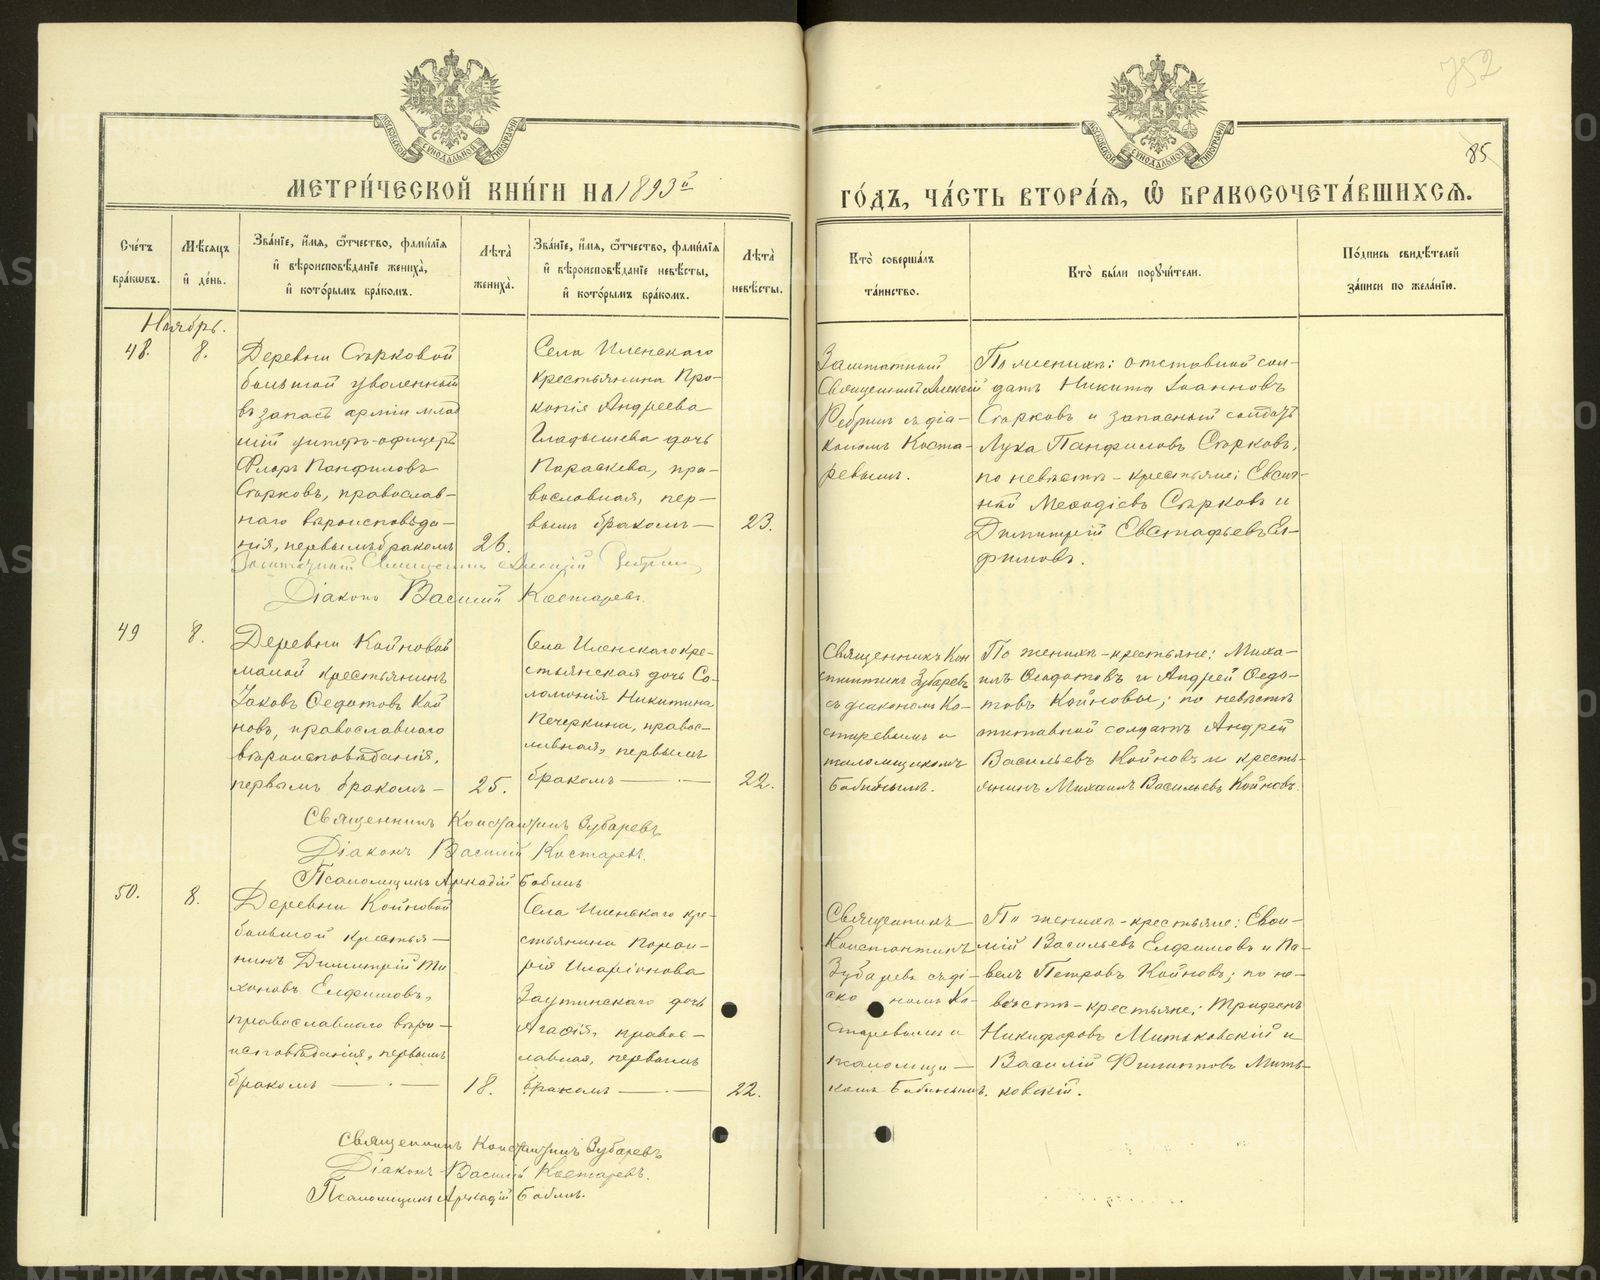 752
85
МОСКОВСКОЙ СѴНОДАЛЬНОЙ ТИПОГРАФІИ
МОСКОВСКОЙ СѴНОДАЛЬНОЙ ТИПОГРАФІИ
МЕТРИ́ЧЕСКОЙ КНИ́ГИ НА 1893й
ГО́ДЪ, ЧА́СТЬ ВТОРА́Я, Ѿ БРАКОСОЧЕТА́ВШИХСЯ.
Сче́тъ бра́кѡвъ.
Мѣ́сяцъ и҆ де́нь.
Зва́нїе, и҆́мя, ѻ҆́тчество, фами́лїя и҆ вѣроисповѣ́данїе жениха̀, и҆ кото́рымъ бра́комъ.
Лѣ́та жениха̀.
Зва́нїе, и҆́мя, ѻ҆́тчество, фами́лїя и҆ вѣроисповѣ́данїе невѣ́сты, и҆ кото́рымъ бра́комъ.
Лѣ́та невѣ́сты.
Кто̀ соверша́лъ та́инство.
Кто̀ бы́ли порꙋчи́тели.
По́дпись свидѣ́телей за́писи по жела́нїю.
Ноябрь.
48.
8.
Деревни Старковой
большой уволенный
въ запасъ арміи млад
шій унтеръ-офицеръ
Флоръ Панфиловъ
Старковъ, православ-
наго вѣроисповѣда-
нія, первымъ бракомъ
26.
Села Иленскаго
крестьянина Про-
копія Андреева
Гладышева дочь
Параскева, пра-
вославная, пер-
вымъ бракомъ —
23.
Заштатный
Священникъ Алексій
Ребринъ съ діа-
кономъ Коста-
ревымъ.
По женихѣ: отставной сол-
датъ Никита Іоанновъ
Старковъ и запасный солдатъ
Лука Панфиловъ Старковъ,
по невѣстѣ - крестьяне: Евсиг-
ній Меѳодіевъ Старковъ и
Димитрій Евстафьевъ Ел-
фимовъ.
Заштатный Священникъ Алексій Ребринъ
Діаконъ Василій Костаревъ.
49
8.
Деревни Койновой
малой крестьянинъ
Іаковъ Ѳедотовъ Кой
новъ, православнаго
вѣроисповѣданія,
первымъ бракомъ -
25.
Села Иленскаго кре-
стьянская дочь Со-
ломонія Никитина
Печеркина, правос-
лавная, первымъ
бракомъ —
22.
Священникъ Кон
стантинъ Зубаревъ
съ діакономъ Ко-
старевымъ и
псаломщикомъ
Бабинымъ.
По женихѣ - крестьяне: Миха-
илъ Ѳедотовъ и Андрей Ѳедо-
товъ Койновы; по невѣстѣ
отставной солдатъ Андрей
Васильевъ Койновъ и кресть-
янинъ Михаилъ Васильевъ Койновъ.
Священникъ Константинъ Зубаревъ
Діаконъ Василій Костаревъ.
Псаломщикъ Аркадій Бабинъ
50.
8.
Деревни Койновой
большой крестья-
нинъ Димитрій Ти
хоновъ Елфимовъ,
православнаго вѣро-
исповѣданія, первымъ
бракомъ —
18.
Села Иленскаго кре-
стьянина Порфи-
рія Иларіонова
Заутинскаго дочь
Агафія, правос-
лавная, первымъ
бракомъ —
22.
Священникъ
Константинъ
Зубаревъ съ ді-
акономъ Ко-
старевымъ и
псаломщи-
комъ Бабинымъ.
По женихѣ - крестьяне: Евѳи-
мій Васильевъ Елфимовъ и Па-
велъ Петровъ Койновъ; по не-
вѣстѣ - крестьяне: Трифонъ
Никифоровъ Митьковскій и
Василій Филиповъ Мить-
ковскій.
Священникъ Константинъ Зубаревъ
Діаконъ Василій Костаревъ.
Псаломщикъ Аркадій Бабинъ.
METRIKI.GASO-URAL.RU